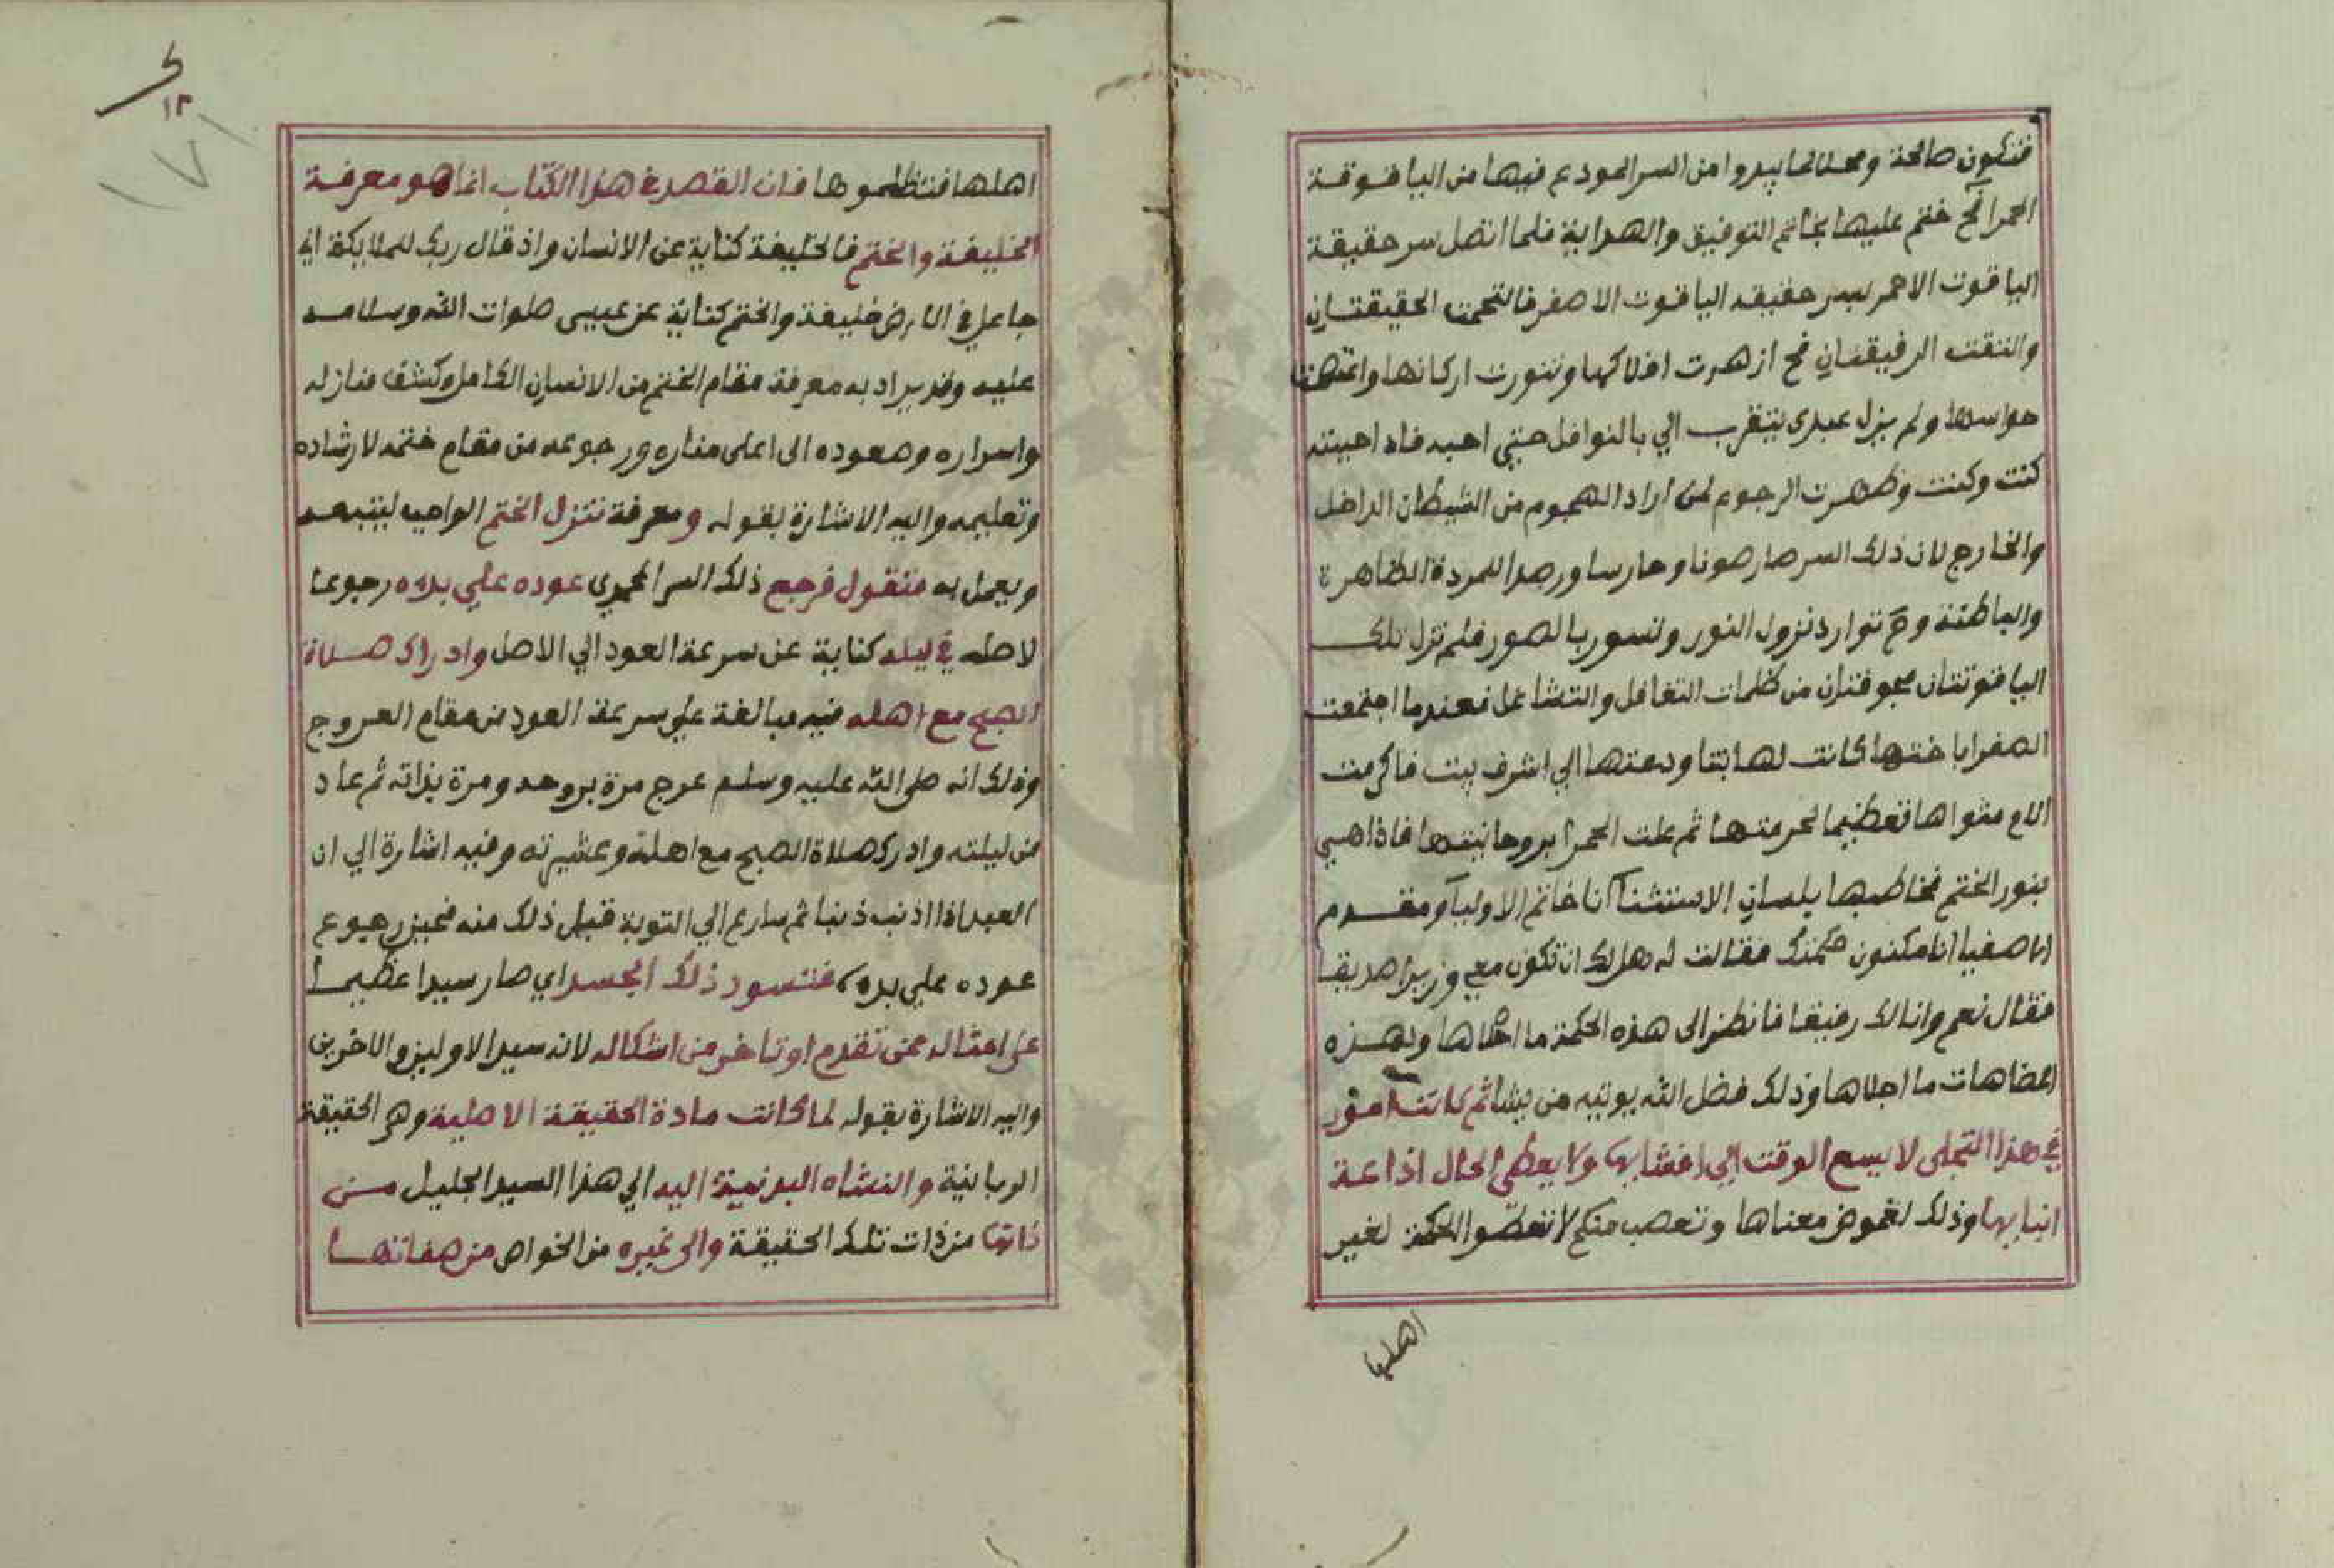 فتكون صالحة ومحلا لما يبدوا من السر المودع فيها من الياقوتة
الحمرا ثم ختم عليها بخاتم التوفيق والهداية فلما اتصل سر حقيقة
الياقوت الاحمر بسر حقيقه الياقوت الاصفر فالتحمت الحقيقتان
والتقت الرقيقتان فح ازهرت افلاكها وتنورت اركانها
حواسها ولم يزل عبدى يتقرب الي بالنوافل حتى احبه فاذا احببته
كنت وكنت وظهرت الرجوم لمن اراد الهجوم من الشيطان الداخل
والخارج لان ذلك السر صار صونا وحارسا ورصدا للمردة الظاهرة
والباطنة وح توارد نزول النور وتسور بالصور فلم تزل تلك
الياقوتتان محجوفتان من ظلمات التغافل والتشاغل فعندما اجتمعت
الصفرا باختها كانت لها بنتا ودعتها الي اشرف بيت فاكرمت
الام مثواها تعظيما لحرمتها ثم علت الحمرا بروحانيتها فاذا هي
بنور الختم فخاطبها بلسان الاستثنا انا خاتم الاوليآ ومقدم
انا مكنون حكمتك فقالت له هل لك ان تكون معي وزيرا صديقا
فقال نعم وانا لك رفيقا فانظر الى هذه الحكمة ما احلاها ولهذه
المضاهات ما اجلاها وذلك فضل الله يوتيه من يشا ثم كانت امور
في هذا التجلى لا يسع الوقت الي افشايها ولا يعطى الحال اذاعة
انبايها وذلك لغموض معناها وتعصب منكم لا تعطوا الحكمة لغير
اهلها
١٢
١٧١
اهلها فتظلموها فان القصد في هذا الكتاب انما هو معرفة
الخليفة والختم فالخليفة كناية عن الانسان واذ قال ربك للملايكة اني
جاعل في الارض خليفة والختم كناية عن عيسى صلوات الله وسلامه
عليه وقد يراد به معرفة مقام الختم من الانسان الكامل وكشف منازله
واسراره وصعوده الى اعلى مناره ورجوعه من مقام ختمه لارشاده
وتعليمه واليه الاشارة بقوله ومعرفة تنزل الختم الواجب ليتبعه
ويعمل به فنقول فرجع ذلك السر المحمدى عوده علي بدءه رجوعا
لاصله في ليله كناية عن سرعة العود الي الاصل وادراك صلاة
الصبح مع اهله فيه مبالغة علي سرعة العود من مقام العروج
وذلك انه صلى الله عليه وسلم عرج مرة بروحه ومرة بذاته ثم عاد
من ليلته وادرك صلاة الصبح مع اهله وعشيرته وفيه اشارة الي ان
العبد اذا اذنب ذنبا ثم سارع الي التوبة قبل ذلك منه فحينئذ رجوع
عوده علي بدء فتسود ذلك الجسد اي صار سيدا عظيما
على امثاله ممن تقدم او تاخر من اشكاله لانه سيد الاولين والاخرين
واليه الاشارة بقوله لما كانت مادة الحقيقة الاصلية وهي الحقيقة
الربانية والنشاه البدنية اليه الي هذا السيد الجليل من
ذاتها من ذات تلك الحقيقة والى غيره من الخواص من صفاتها